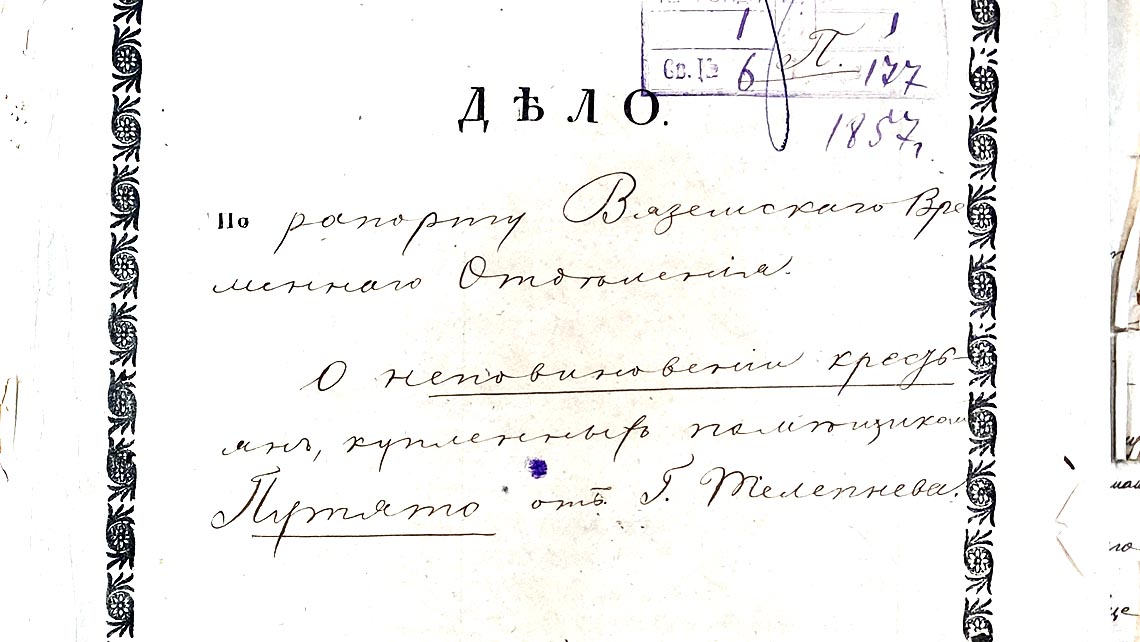 1 1
Св. № 6 П. 177
1857 г.
ДѢЛО.
По рапорту Вяземскаго Вре
меннаго Отдѣленія.
О неповиновеніи кресть-
янъ, купленныхъ помѣщикомъ
Путято отъ Г. Телепнева.